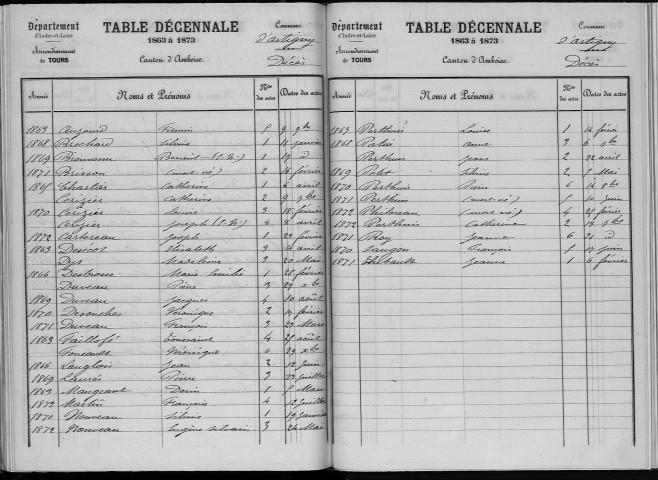 Département
d'Indre-et-Loire
Arrondissement
de TOURS
TABLE DÉCENNALE
1863 à 1873
Canton d'Amboise.
Commune
d'artigny
Décès
Année Noms et Prénoms Nos des actes Dates des actes
1863 Firmin 8 9 9bre
1868 Brochard Silvine 1 11 janvier
1869 Bienvenu 1 19 d
1871 Brisson (mort-né) 2 16 février
1865 Chartier Catherine 1 6 avril
Cerizier Catherine 2 9 9bre
1870 Cerizier Louise 3 18 février
Cerizier Joseph 4 avril
1872 Joseph 1 23 février
1863 Elisabeth 3 14 avril
Dys Madeleine 3 20 Mai
1866 Desbrosse Marie 1 28 février
Duveau Pierre 3 29 xbre
1869 Duveau Jacques 4 10 août
1870 Desouches Véronique 2 février
1871 Duveau François 3 23 Mars
1863 Taillofé Toussaint 4 25 août
Foucault Véronique 6 29 xbre
1866 Langlois Jean 2 12 juin
1869 Pierre 3 22 juillet
1863 Mangeant 1 8 Mars
1872 Martin François 4 12 juillet
1870 Nouveau Silvain 1 19 janvier
1872 Nouveau Eugène Silvain 3 24 Mai
Département
d'Indre-et-Loire
Arrondissement
de TOURS
TABLE DÉCENNALE
1863 à 1873
Canton d'Amboise.
Commune
d'artigny
Décès
Année Noms et Prénoms Nos des actes Dates des actes
1863 Perthuis Louise 1 14 février
1868 Patin anne 3 6 9bre
Perthuis Jean 2 22 avril
1869 Silvine 2 8 Mai
1870 Perthuis Pierre 6 14 8bre
1871 Perthuis (mort-né) 5 10 juin
1872 Philoreau (mort né) 4 21 février
1872 Perthuis Catherine 2 17 9bre
1871 Roy Jeanne 6 21 d
1870 Saugon François 5 17 juin
1871 Thibault Jeanne 1 6 février